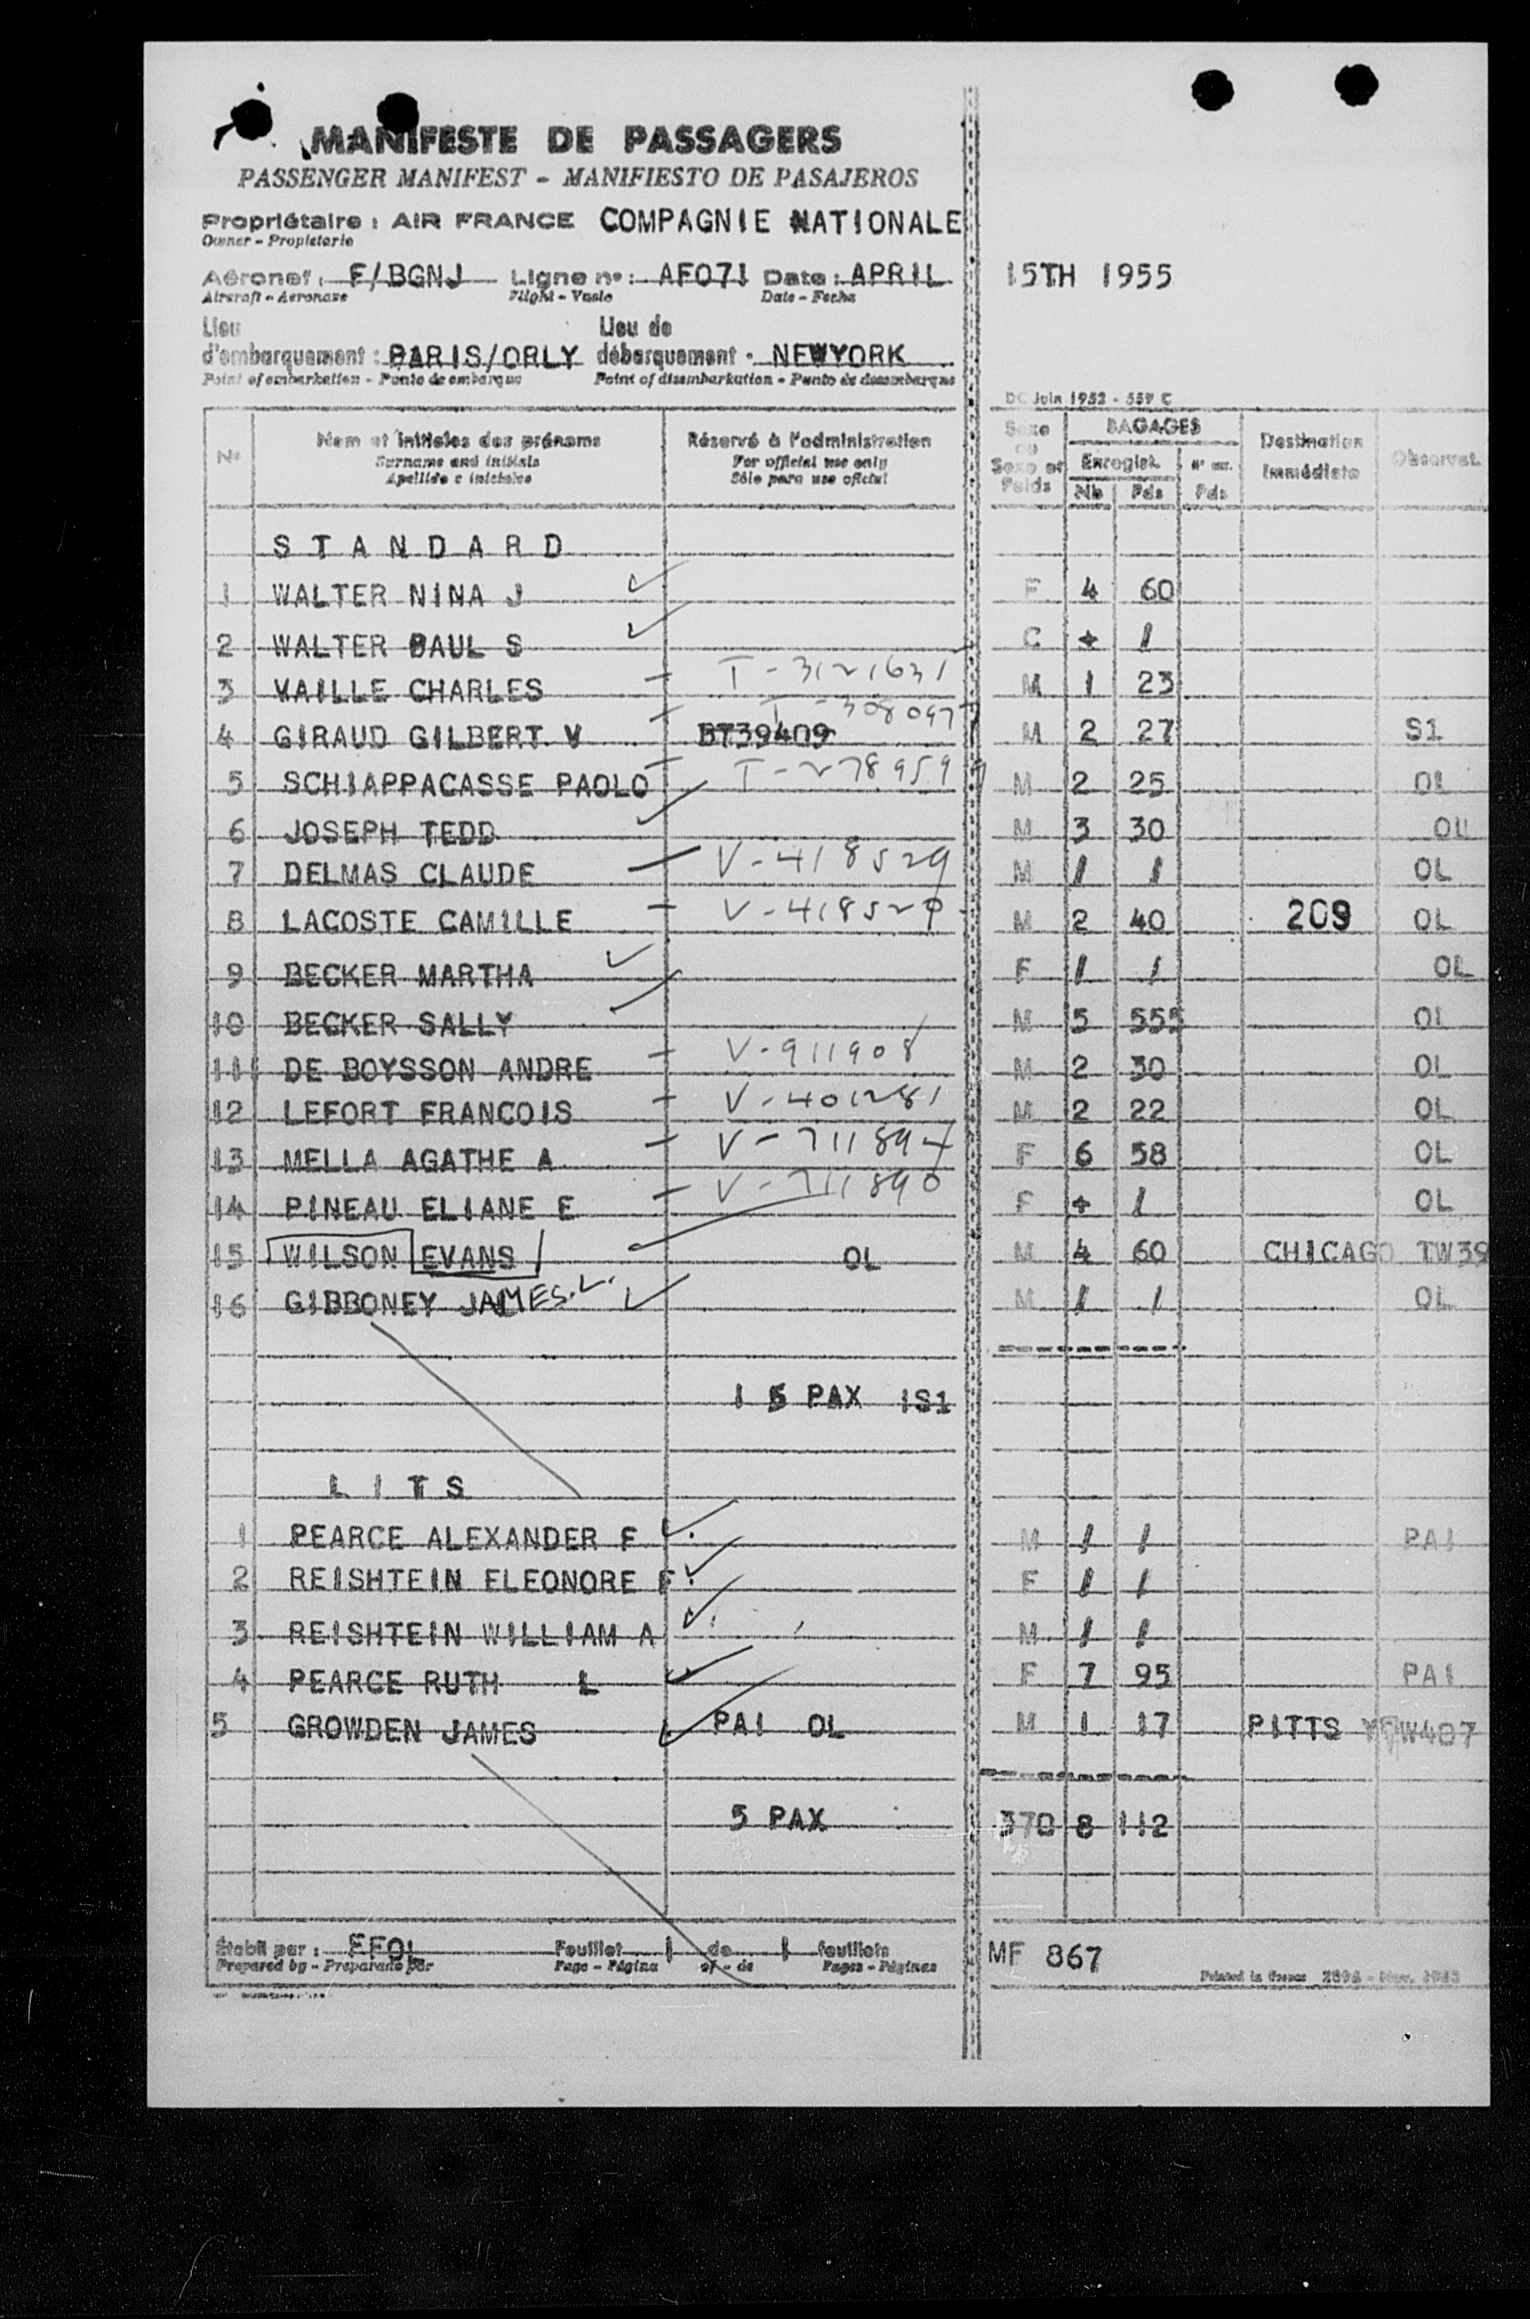 MANIFESTE DE PASSAGERS
PASSENGER MANIFEST - MANIFIESTO DE PASAJEROS
Propriétaire : AIR FRANCE COMPAGNIE NATIONALE
Owner - Propietario
Aéronef : F/BGNJ Ligne no : AF071 Date : APRIL 15TH 1955
Aircraft - Aeronave Flight - Vuelo Date - Fecha
Lieu d'embarquement : PARIS/ORLY Lieu de débarquement : NEWYORK
Point of embarkation - Punto de embarque Point of disembarkation - Punto de desembarque
DC Juin 1952 - 559 C
No Nom et initiales des prénoms Réservé à l'administration Sexe ou Sexe et Poids BAGAGES Destination Immédiate Observat.
Surname and initials For official use only Enregist.
Apellido e iniciales Sólo para uso oficial Nb Pds Pds
STANDARD
1 WALTER NINA J F 4 60
2 WALTER PAUL S C + /
3 VAILLE CHARLES T-3121631 M 1 23
4 GIRAUD GILBERT V BT39409 T-308097 M 2 27 S1
5 SCHIAPPACASSE PAOLO T-278959 M 2 25 OL
6 JOSEPH TEDD M 3 30 OL
7 DELMAS CLAUDE V-418529 M / / OL
8 LACOSTE CAMILLE V-418520 M 2 40 209 OL
9 BECKER MARTHA F / / OL
10 BECKER SALLY M 5 555 OL
11 DE BOYSSON ANDRE V-911908 M 2 30 OL
12 LEFORT FRANCOIS V-401281 M 2 22 OL
13 MELLA AGATHE A V-711894 F 6 58 OL
14 PINEAU ELIANE E V-711890 F + / OL
15 WILSON EVANS OL M 4 60 CHICAGO TW39
16 GIBBONEY JAMES.L. M / / OL
15 PAX 1S1
LITS
1 PEARCE ALEXANDER F M / / PA1
2 REISHTEIN ELEONORE F F / /
3 REISHTEIN WILLIAM A M / /
4 PEARCE RUTH L F 7 95 PA1
5 GROWDEN JAMES PA1 OL M 1 17 PITTS TW407
5 PAX 370 8 112
Établi par : FFOL Feuillet 1 de 1 feuillets MF 867
Prepared by - Preparado por Page - Página of - de Pages - Páginas